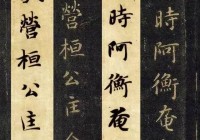 時阿衡奄
時阿衡奄
營桓公匡
營桓公匡